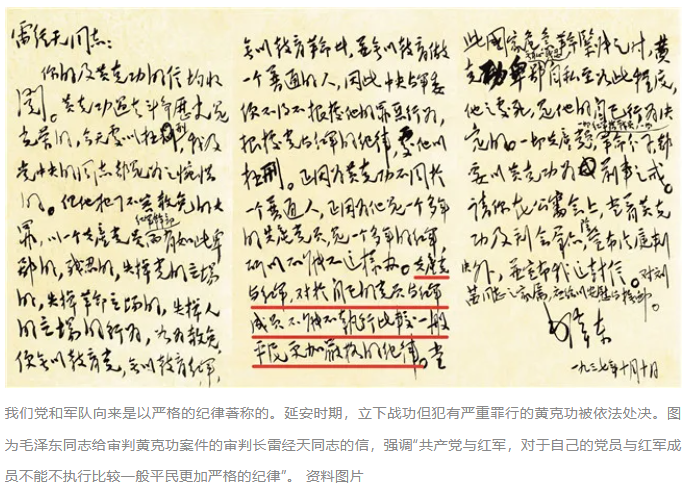 雷经天同志：
你的及黄克功的信均收
阅。黄克功过去斗争历史是
光荣的，今天处以极刑，我及
党中央的同志都是为之惋惜
的。但他犯了不容赦免的大
罪，以一个共产党员红军干部而有如此卑
鄙的，残忍的，失掉党的立场
的，失掉革命立场的，失掉人
的立场的行为，如为赦免，
便无以教育党，无以教育红军，
无以教育革命者，并无以教育做
一个普通的人，因此中央与军委
便不得不根据他的罪恶行为，
根据党与红军的纪律，处他以
极刑。正因为黄克功不同于
一个普通人，正因为他是一个多年
的共产党员，是一个多年的红军，
所以不能不这样办。共产党
与红军，对于自己的党员与红军
成员不能不执行比较一般
平民更加严格的纪律。当
此国家危急革命紧张之时，黄
克功卑鄙无耻残忍自私至如此程度，
他之处死，是他的自己行为决
定的。一切共产党员，一切红军指战员，一切革命分子，都
要以黄克功为前车之戒。
请你在公审会上，当着黄克
功及到会群众，除宣布法庭判
决外，并宣布我这封信。对刘
茜同志之家属，应给以安慰与抚恤。
毛泽东
一九三七年十月十日
我们党和军队向来是以严格的纪律著称的。延安时期，立下战功但犯有严重罪行的黄克功被依法处决。图
为毛泽东同志给审判黄克功案件的审判长雷经天同志的信，强调“共产党与红军，对于自己的党员与红军成
员不能不执行比较一般平民更加严格的纪律”。 资料图片